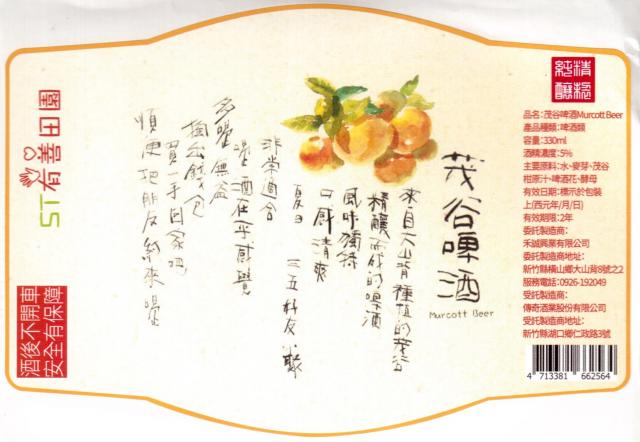 精釀
純釀
品名:茂谷啤酒Murcott Beer
產品種類:啤酒類
容量:330ml
酒精濃度:5%
主要原料:水、麥芽、茂谷
柑原汁、啤酒花、酵母
有效日期:標示於包裝
上(西元年/月/日)
有效期限:2年
委託製造商:
禾誠興業有限公司
委託製造商地址:
新竹縣橫山鄉大山背8號之2
服務電話:0926-192049
受託製造商:
傳奇酒業股份有限公司
受託製造商地址:
新竹縣湖口鄉仁政路3號
4 713381 662564
茂谷啤酒
Murcott Beer
來自大山背種植的茂谷
精釀而成的啤酒
風味獨特
口感清爽
夏日 三五好友小聚
非常適合
喝酒在乎感覺
多喝無益
掏出錢包
買一手回家吧
順便把朋友約來喝
ST 有善田園
酒後不開車
安全有保障